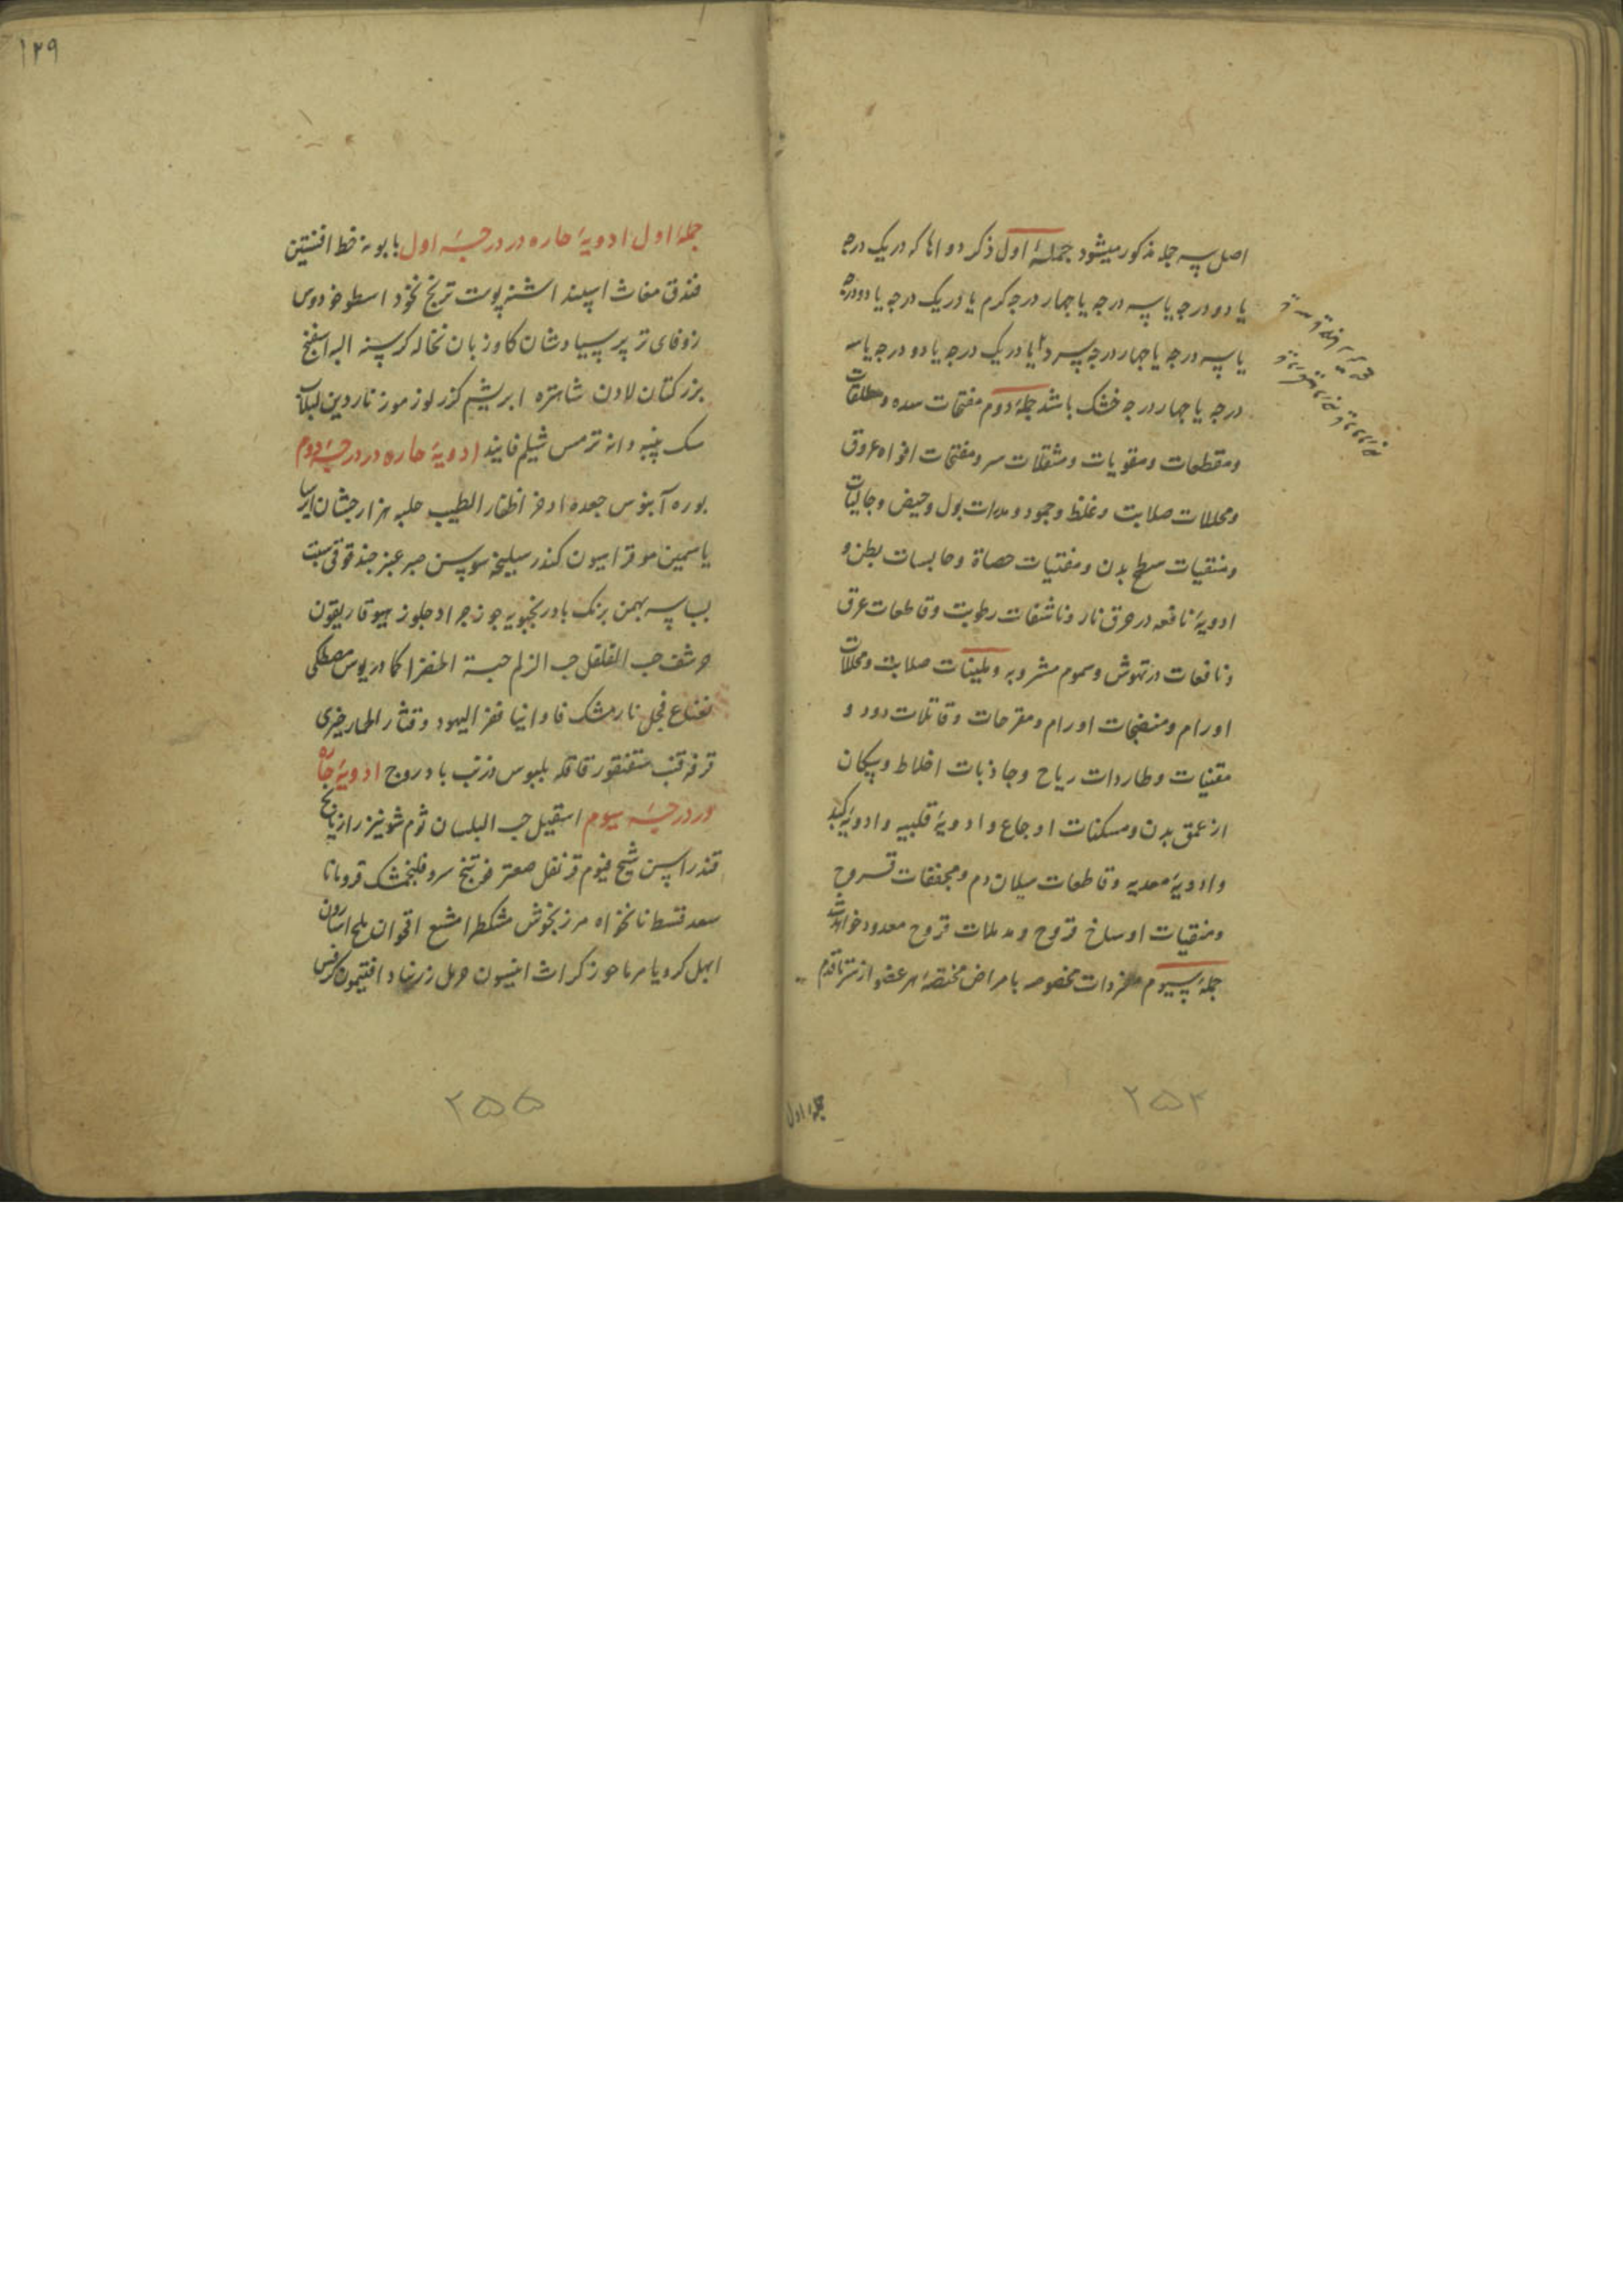 اصل سه جمله مذکور میشود جملهٔ اول ذکر دواها که در یک درجه
یا دو درجه یا سه درجه یا چهار درجه کرم یا در یک درجه یا دو درجه
یا سه درجه یا چهار درجه سرد یا در یک درجه یا دو درجه یا سه
درجه یا چهار درجه خشک باشد جملهٔ دوم مفتحات سده و مطلقات
و مقطعات و مقویات و مثقلات سر و مفتحات افواه عروق
و محللات صلابت و غلظ و جمود و مدرات بول و حیض و جالیات
و منقیات سطح بدن و مفتیات حصاة و حابسات بطن و
ادویهٔ نافعه در حرق نار و ناشفات رطوبت و قاطعات عرق
و نافعات در نهوش و سموم مشروبه و ملینات صلابت و محللات
اورام و منضجات اورام و مقرحات و قاتلات دود و
مقنیات و طاردات ریاح و جاذبات اخلاط و پیکان
از عمق بدن و مسکنات اوجاع و ادویهٔ قلبیه و ادویهٔ کبد
و ادویهٔ معدیه و قاطعات سیلان دم و مجففات قروح
و منقیات اوساخ قروح و مدملات قروح معدود خواهد شد
جملهٔ سیوم مفردات مخصوصه بامراض مختصهٔ هر عضو از سر تا قدم
۲۵۴
جملهٔ اول
۱۲۹
جملهٔ اول ادویهٔ حاره در درجهٔ اول بابونه خط افتین
فندق مغاث اسپند اشنه پوست ترنج نخود اسطوخودوس
زوفای تر پرسیاوشان کاوزبان نخاله کرسنه الیه اسفنج
بزر کتان لادن شاهتره ابریشم کزر لوز موز ناردین لبلاب
سک پنبه دانه ترمس شیلم فانیذ ادویهٔ حاره در درجهٔ دوم
بوره آبنوس جعده اذخر اظفار الطیب حلبه هزارجشان ایرسا
یاسمین مو قراسیون کندر سلیخه سوسن صبر عنبر حندقوقی شبت
بسباسه بهمن برنک بادرنجبویه جوز جراد جلوز هیوفاریقون
حرشف حب القلقل حب الزلم حبة الخضرا کمادریوس مصطکی
نعناع فجل نارمشک فاوانیا قفر الیهود و قثاء الحمار خیری
قرفه قنب سقنقور قاقله بلبوس زرنب بادروج ادویهٔ حاره
در درجهٔ سیوم اسقیل حب البلسان ثوم شونیز رازیانج
قند راسن شیح فیوم قرنفل صعتر فوتنج سرو فلنجمشک قردمانا
سعد قسط نانخواه مرزنجوش مشکطرامشیع اقحوان ملح اسارون
ابهل کرویا مرماحوز کراث انیسون حرمل زرنباد افتیمون کرفس
۲۵۵